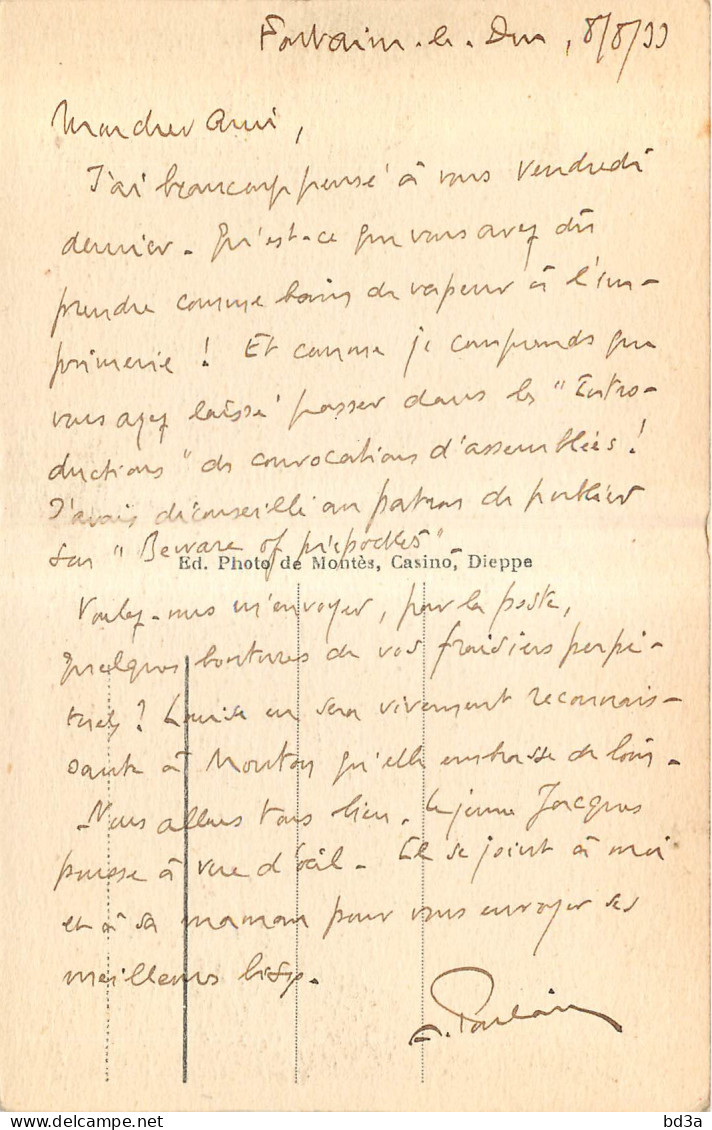 8/8/33
Mon cher Ami,
J'ai beaucoup pensé à vous vendredi
dernier. Qu'est-ce que vous avez dû
prendre comme bains de vapeur à l'im-
primerie ! Et comme je comprends que
vous ayez laissé passer dans les "Intro-
ductions" des convocations d'assemblées !
J'avais déconseillé au patron de publier
son "Beware of pickpockets".
Ed. Photo de Montès, Casino, Dieppe
Voulez-vous m'envoyer, par la poste,
quelques boutures de vos fraisiers perpé-
tuels ? Louise en sera vivement reconnais-
sante à Mouton qu'elle embrasse de loin.
- Nous allons tous bien. Le jeune Jacques
pousse à vue d'œil. Il se joint à moi
et à sa maman pour vous envoyer ses
meilleurs